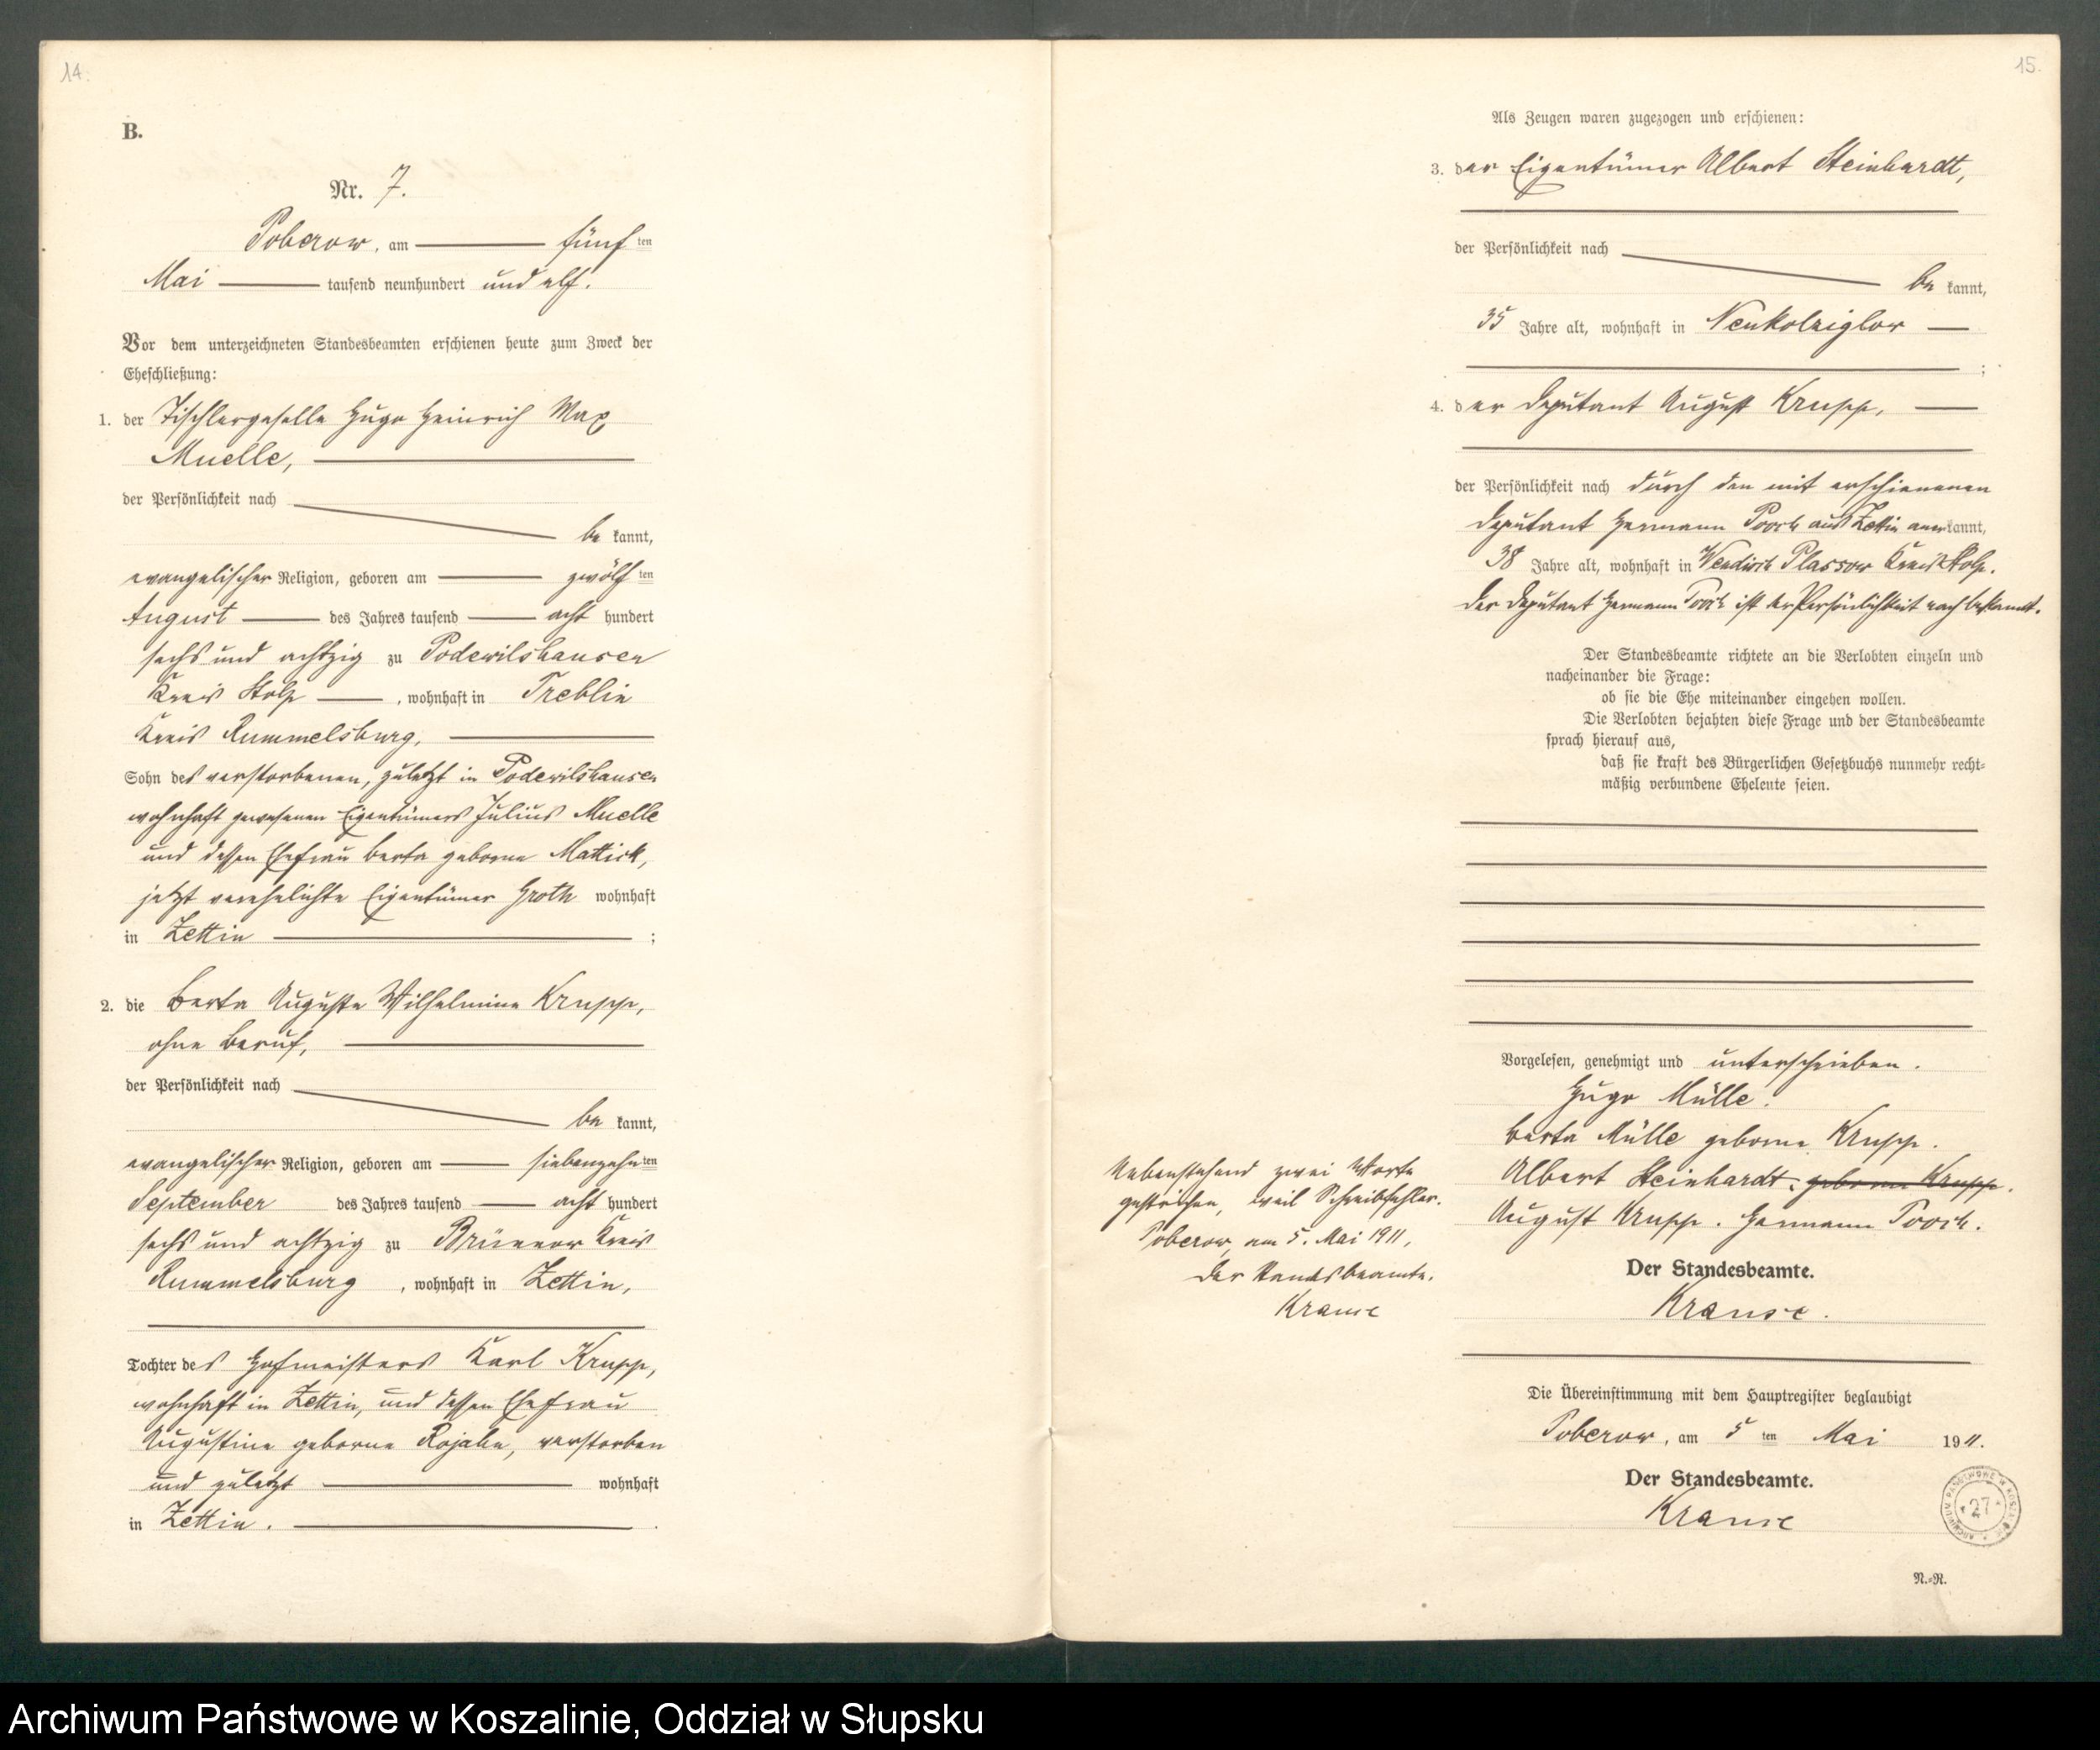 14.
B.
Nr. 7.
Poberow, am fünf ten
Mai tausend neunhundert und elf.
Vor dem unterzeichneten Standesbeamten erschienen heute zum Zweck der
Eheschließung:
1. der Tischlergeselle Hugo Heinrich Max
Muelle,
der Persönlichkeit nach
be kannt,
evangelischer Religion, geboren am zwölf ten
August des Jahres tausend acht hundert
sechs und achtzig zu Podewilshausen
Kreis Stolp , wohnhaft in Treblin
Kreis Rummelsburg,
Sohn des verstorbenen, zuletzt in Podewilshausen
wohnhaft gewesenen Eigentümers Julius Muelle
und dessen Ehefrau Berta geborne Mattick,
jetzt verehelichte Eigentümer Groth wohnhaft
in Zettin ;
2. die Berta Auguste Wilhelmine Krupp,
ohne Beruf,
der Persönlichkeit nach
be kannt,
evangelischer Religion, geboren am siebenzehn ten
September des Jahres tausend acht hundert
sechs und achtzig zu Brünnow Kreis
Rummelsburg , wohnhaft in Zettin,
Tochter des Hofmeisters Karl Krupp,
wohnhaft in Zettin, und dessen Ehefrau
Augustine geborne Rojahn, verstorben
und zuletzt wohnhaft
in Zettin. .
15.
Als Zeugen waren zugezogen und erschienen:
3. der Eigentümer Albert Steinhardt,
der Persönlichkeit nach
be kannt,
35 Jahre alt, wohnhaft in Neukolziglow
;
4. der Deputant August Krupp,
der Persönlichkeit nach durch den mit erschienenen
Deputant Hermann Pooch aus Zettin anerkannt,
38 Jahre alt, wohnhaft in Wendisch Plassow Kreis Stolp.
Der Deputant Hermann Pooch ist der Persönlichkeit nach bekannt.
Der Standesbeamte richtete an die Verlobten einzeln und
nacheinander die Frage:
ob sie die Ehe miteinander eingehen wollen.
Die Verlobten bejahten diese Frage und der Standesbeamte
sprach hierauf aus,
daß sie kraft des Bürgerlichen Gesetzbuchs nunmehr recht-
mäßig verbundene Eheleute seien.
Vorgelesen, genehmigt und unterschrieben.
Hugo Mülle.
Berta Mülle geborne Krupp.
Albert Steinhardt. geborne Krupp.
August Krupp. Hermann Pooch.
Nebenstehend zwei Worte
gestrichen, weil Schreibfehler.
Poberow, am 5. Mai 1911,
Der Standesbeamte.
Krause
Der Standesbeamte.
Krause.
Die Übereinstimmung mit dem Hauptregister beglaubigt
Poberow, am 5 ten Mai 1911.
Der Standesbeamte.
Krause
ARCHIWUM PAŃSTWOWE W KOSZALINIE
* 27 *
N.=R.
Archiwum Państwowe w Koszalinie, Oddział w Słupsku